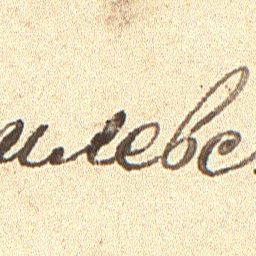 илевс